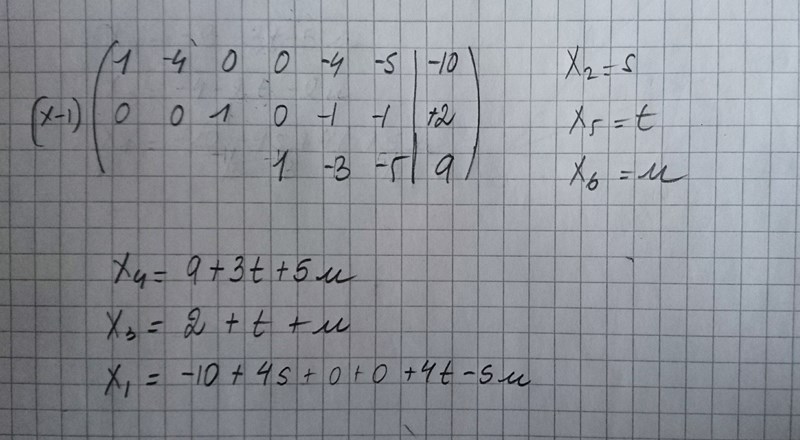 1 -4 0 0 -4 -5 | -10
(x-1) 0 0 1 0 -1 -1 | +2
1 -3 -5 | 9
x₂ = s
x₅ = t
x₆ = u
x₄ = 9 + 3t + 5u
x₃ = 2 + t + u
x₁ = -10 + 4s + 0 + 0 + 4t - 5u